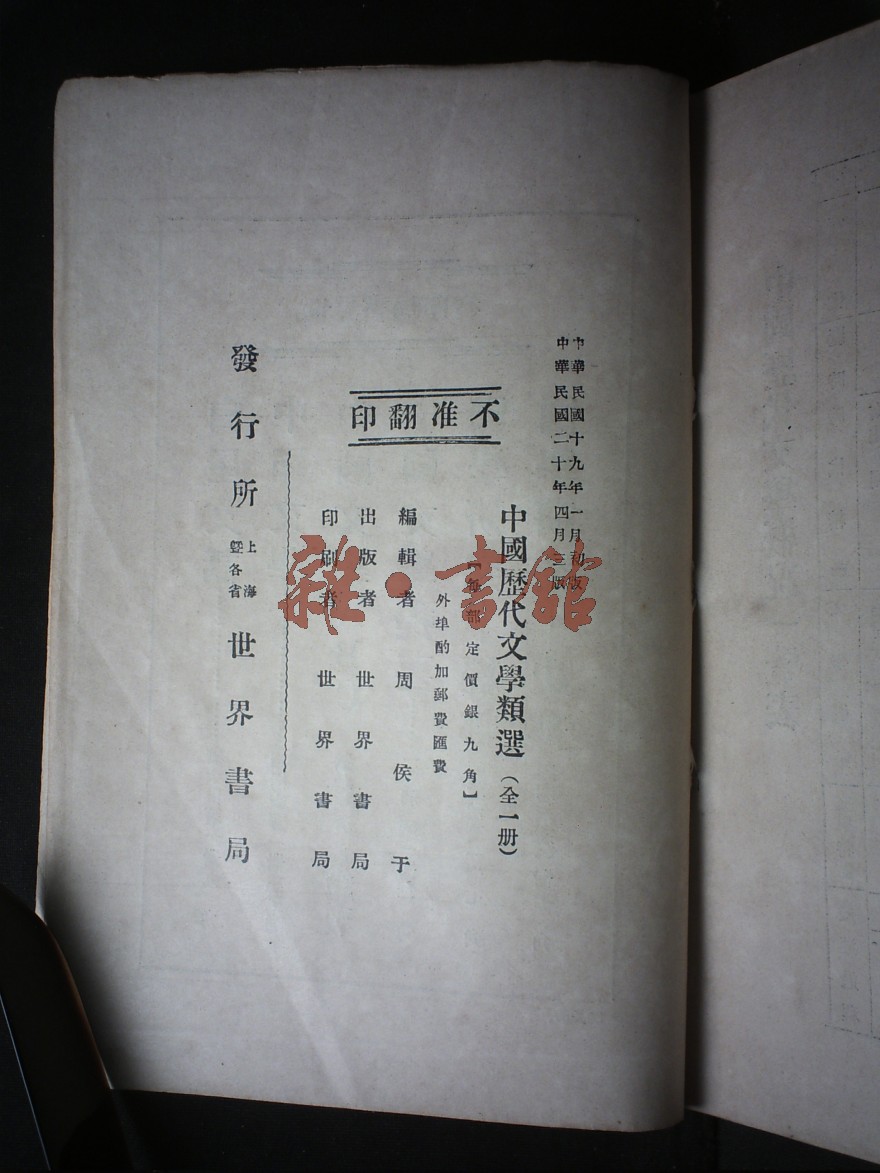 中華民國十九年一月初版
中華民國二十年四月三版
不准翻印
中國歷代文學類選（全一册）
【每部定價銀九角】
外埠酌加郵費匯費
編輯者 周侯于
出版者 世界書局
印刷者 世界書局
發行所 上海暨各省 世界書局
雜·書館